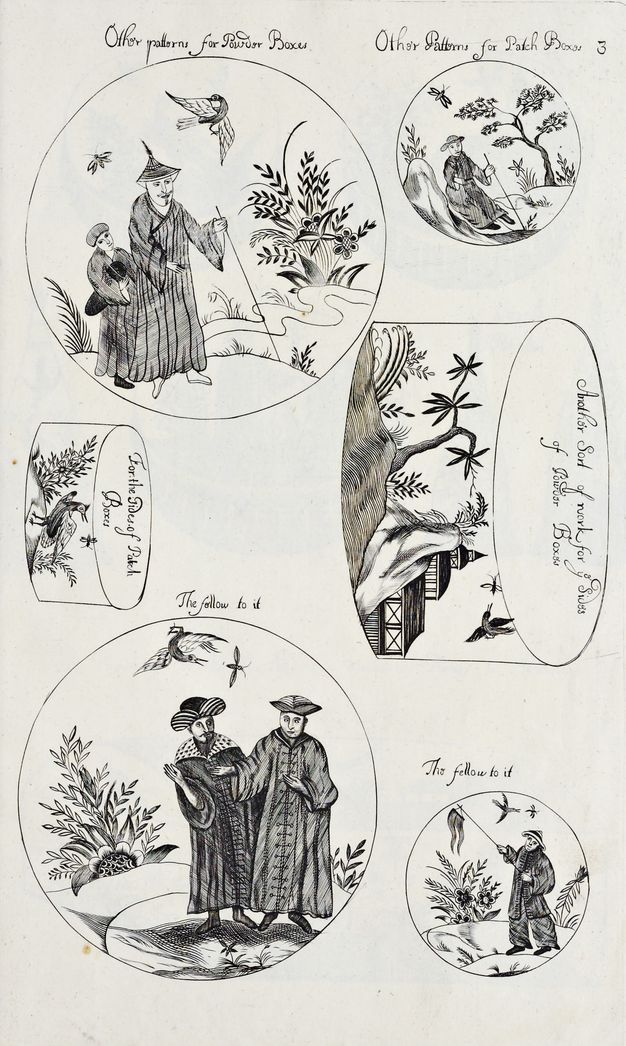 Other patterns for Powder Boxes
Other Patterns for Patch Boxes 3
Another Sort of work for yᵉ Sides
of Powder Boxes
For the Sides of Patch
Boxes
The fellow to it
The fellow to it